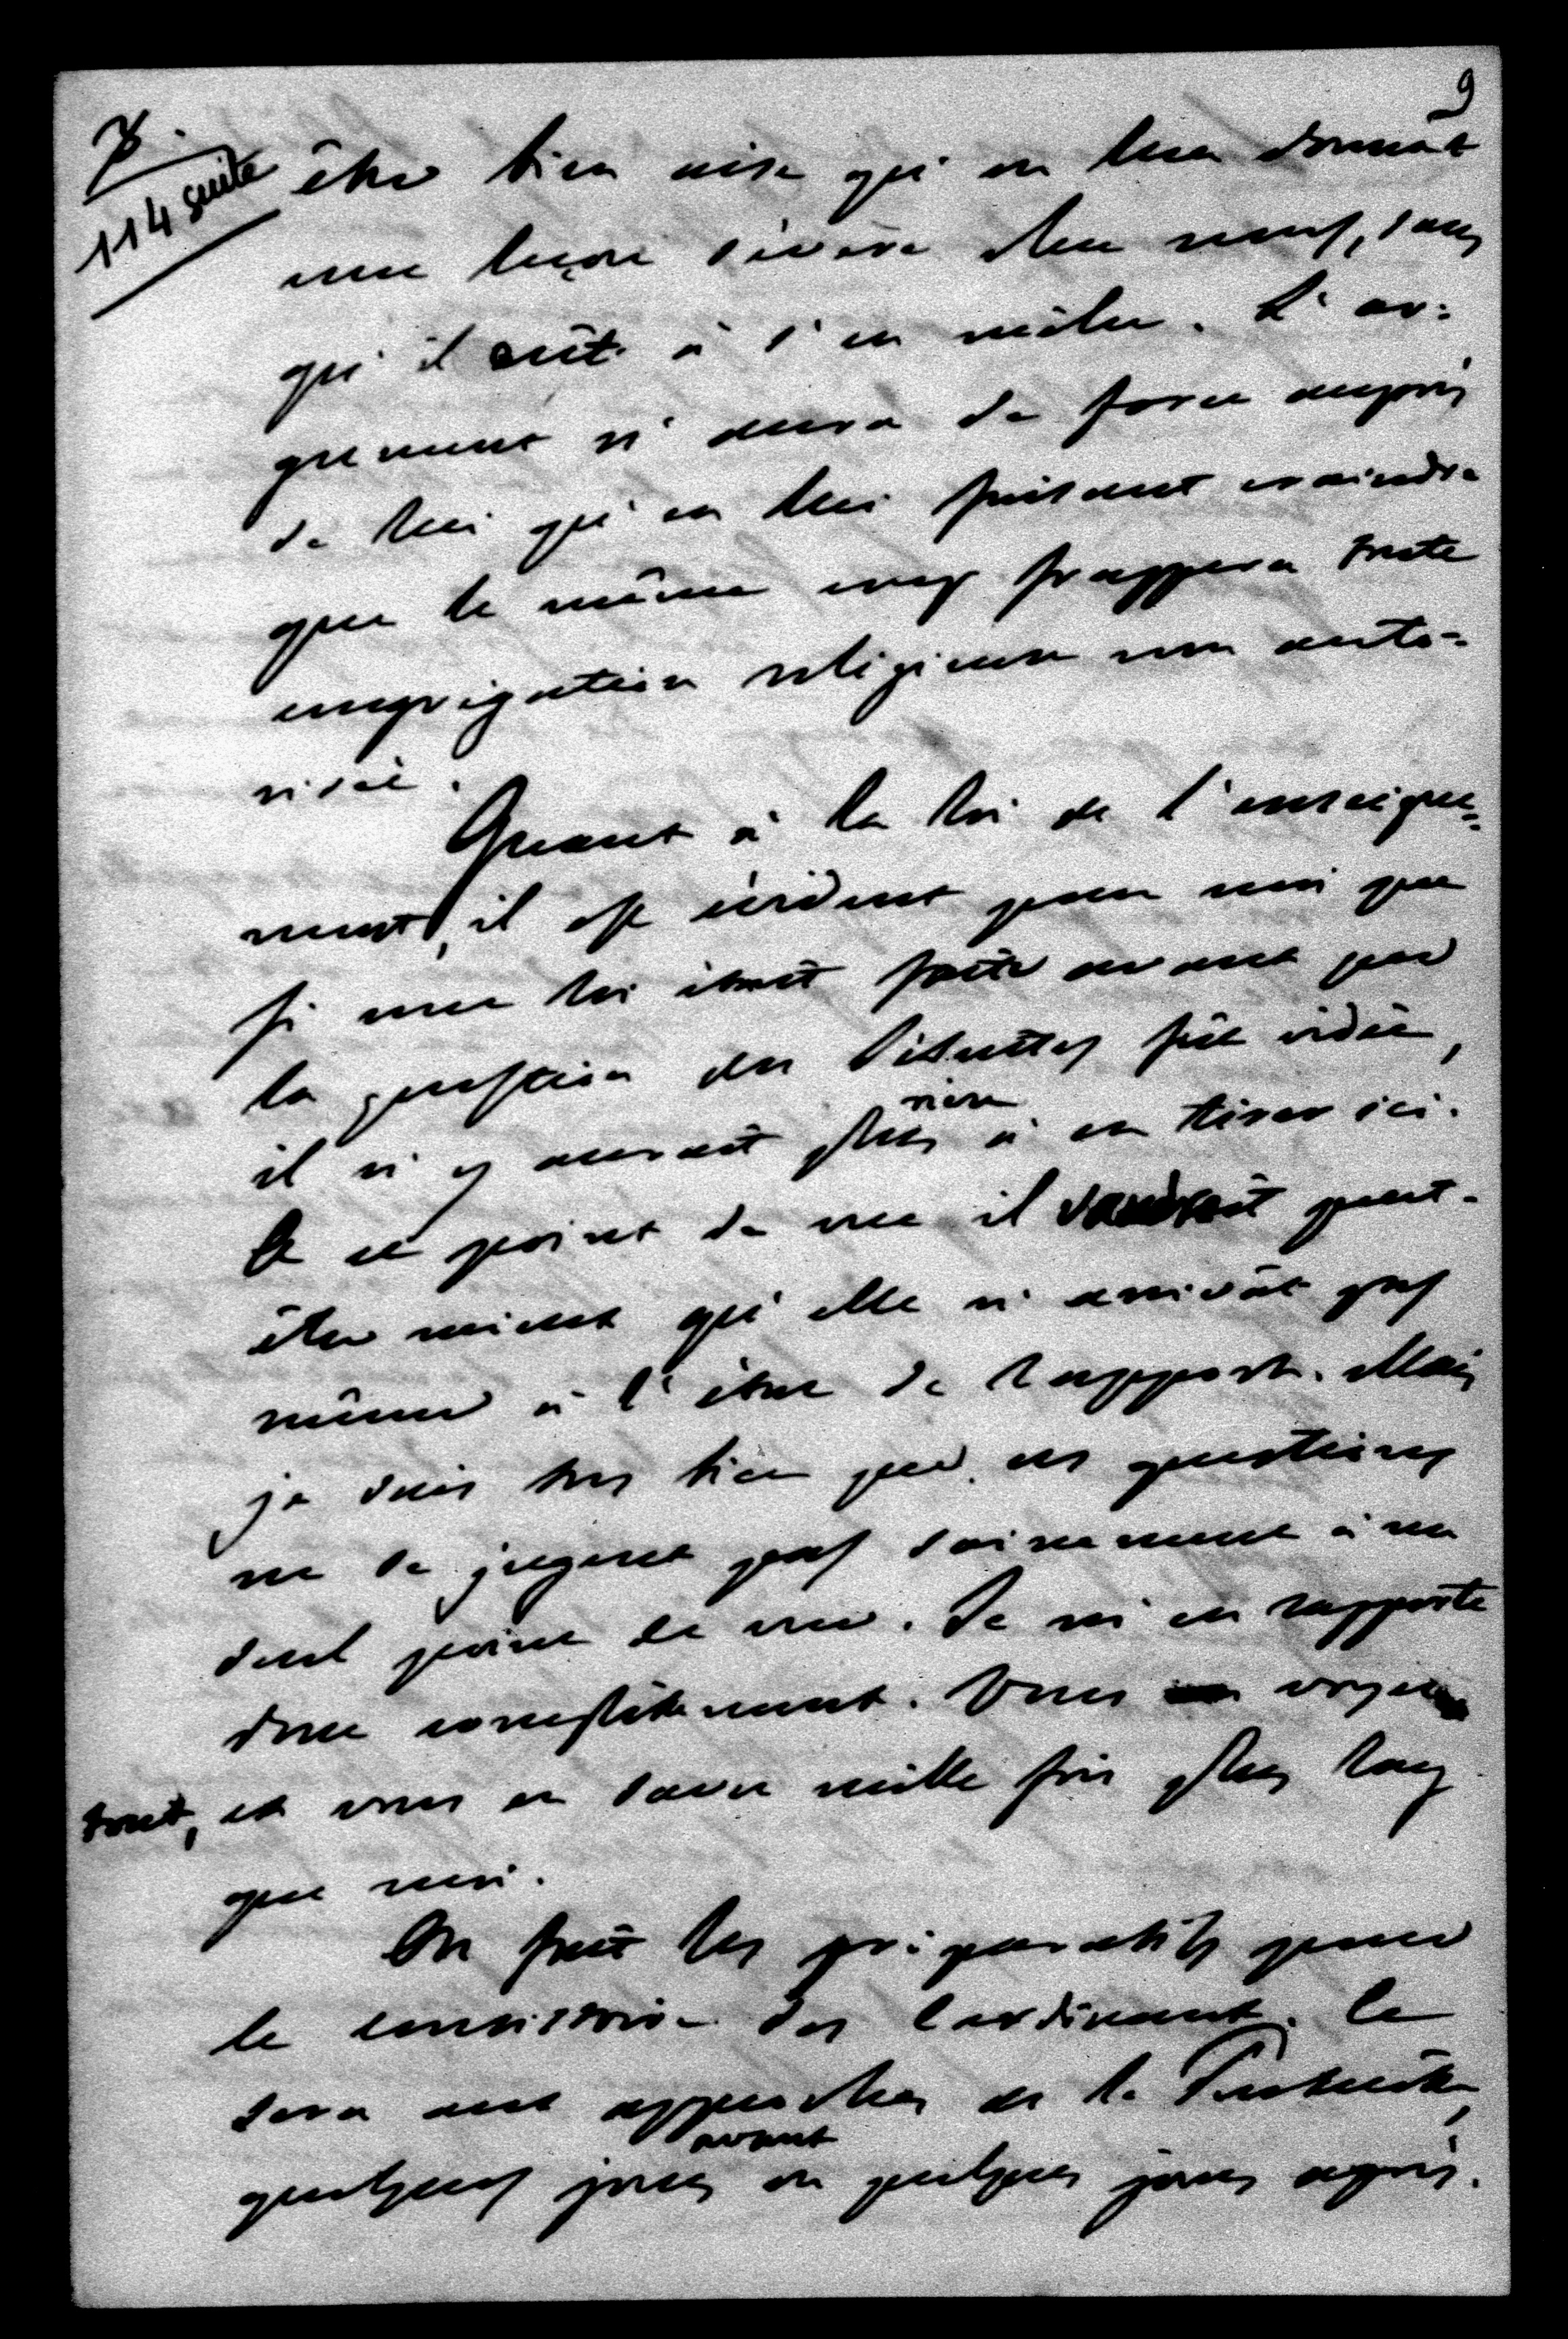 9
7.
114 suite
être bien aise qu'on leur donnât
une leçon sévère chez nous, sans
qu'il eût à s'en mêler. L'ar=
gument n'aura de force auprès
de lui qu'en lui faisant craindre
que le même coup frappera toute
congrégation religieuse non auto=
risée.
Quant à la loi de l'enseigne=
ment, il est évident pour moi que
si une loi était faite avant que
la question des Jésuites fût vidée,
il n'y aurait plus rien à en tirer ici.
A ce point de vue il vaudrait peut-
être mieux qu'elle n'arrivât pas
même à l'état de rapport. Mais
je sais très bien que ces questions
ne se jugent pas sainement à un
seul point de vue. Je m'en rapporte
donc complètement. Vous voyez
tout, et vous en savez mille fois plus long
que moi.
On fait les préparatifs pour
le consistoire des Cardinaux. Ce
sera aux approches de la Pentecôte,
quelques jours avant ou quelques jours après.